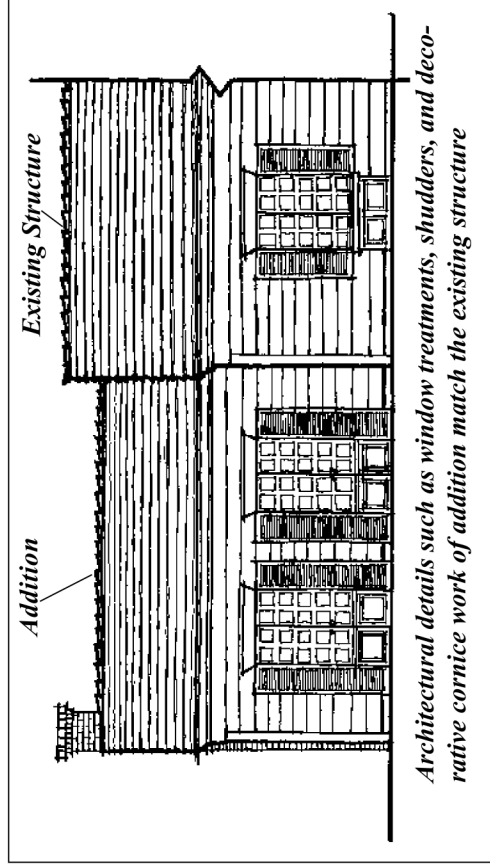 Addition
Existing Structure
Architectural details such as window treatments, shudders, and deco-
rative cornice work of addition match the existing structure